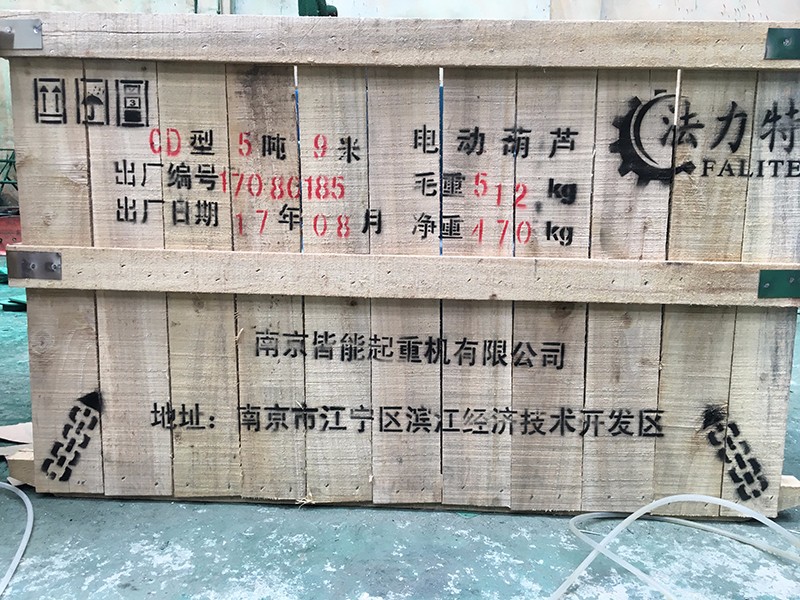 CD型 5吨 9米 电动葫芦
出厂编号17086185 毛重512.kg
出厂日期 17年08月 净重470.kg
法力特
FALITE
南京皆能起重机有限公司
地址：南京市江宁区滨江经济技术开发区